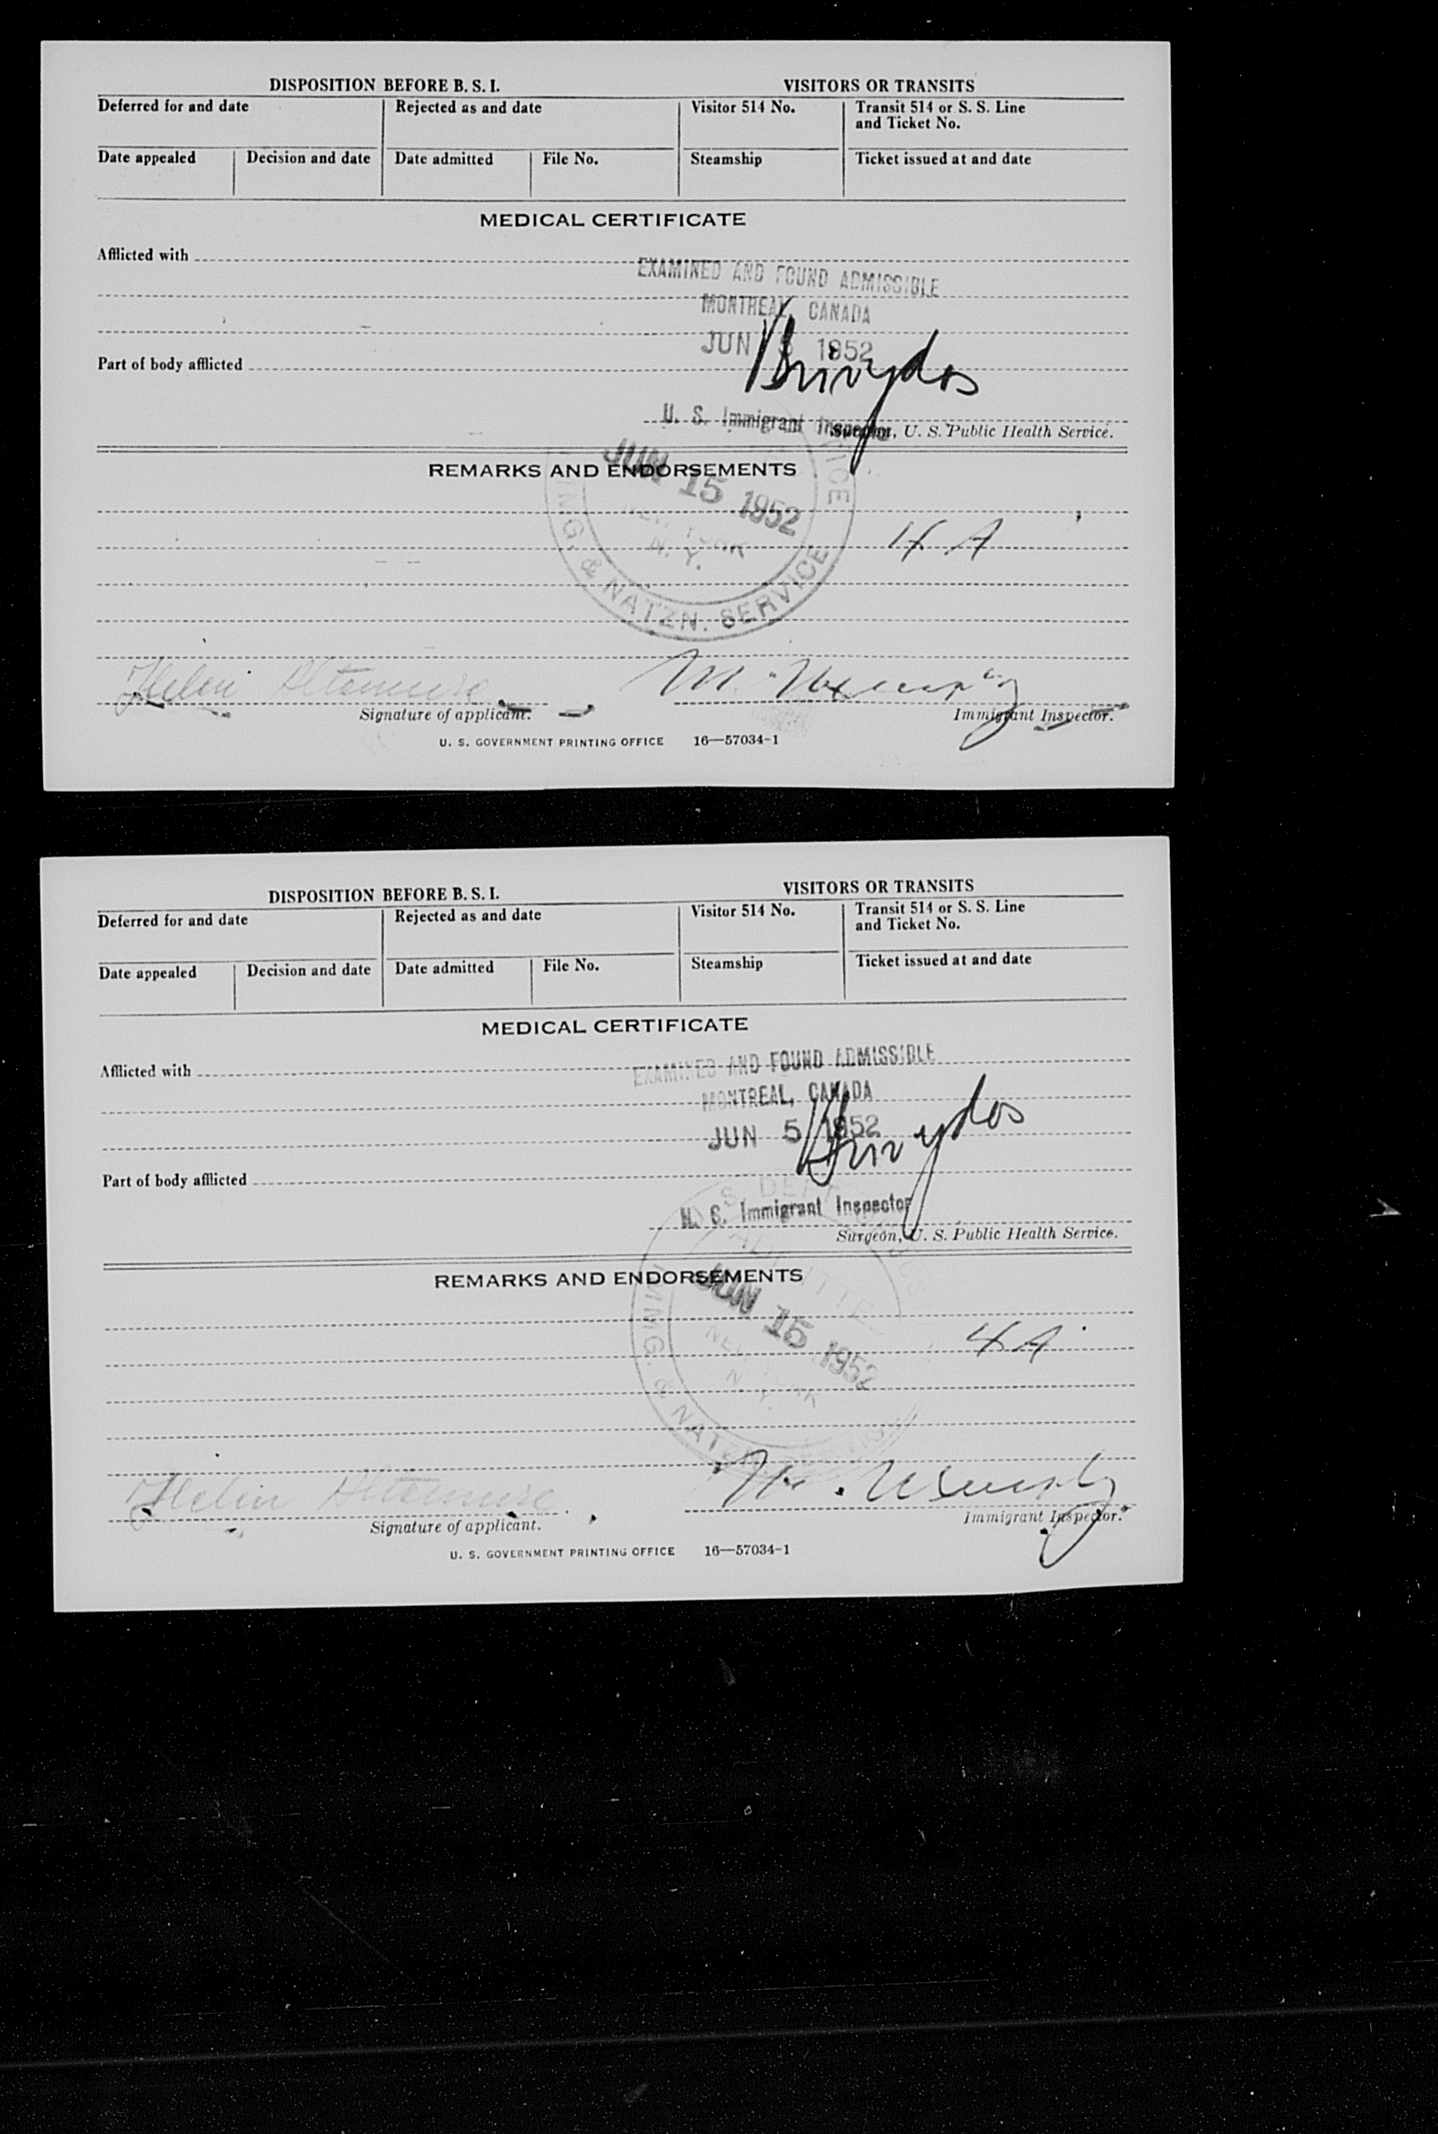 DISPOSITION BEFORE B. S. I. VISITORS OR TRANSITS
Deferred for and date Rejected as and date Visitor 514 No. Transit 514 or S. S. Line
and Ticket No.
Date appealed Decision and date Date admitted File No. Steamship Ticket issued at and date
MEDICAL CERTIFICATE
Afflicted with
EXAMINED AND FOUND ADMISSIBLE
MONTREAL, CANADA
JUN 1952
Part of body afflicted
U. S. Immigrant Inspector
Surgeon, U. S. Public Health Service.
REMARKS AND ENDORSEMENTS
JUN 15 1952
NEW YORK
N. Y.
IMMG. & NATZN. SERVICE
4 A
Helen
Signature of applicant. Immigrant Inspector.
U. S. GOVERNMENT PRINTING OFFICE 16—57034-1
DISPOSITION BEFORE B. S. I. VISITORS OR TRANSITS
Deferred for and date Rejected as and date Visitor 514 No. Transit 514 or S. S. Line
and Ticket No.
Date appealed Decision and date Date admitted File No. Steamship Ticket issued at and date
MEDICAL CERTIFICATE
Afflicted with
EXAMINED AND FOUND ADMISSIBLE
MONTREAL, CANADA
JUN 5 1952
Part of body afflicted
U. S. Immigrant Inspector
Surgeon, U. S. Public Health Service.
REMARKS AND ENDORSEMENTS
ADMITTED
JUN 15 1952
NEW YORK
N. Y.
IMMG. & NATZN.
4 A
Helen
Signature of applicant. Immigrant Inspector.
U. S. GOVERNMENT PRINTING OFFICE 16—57034-1